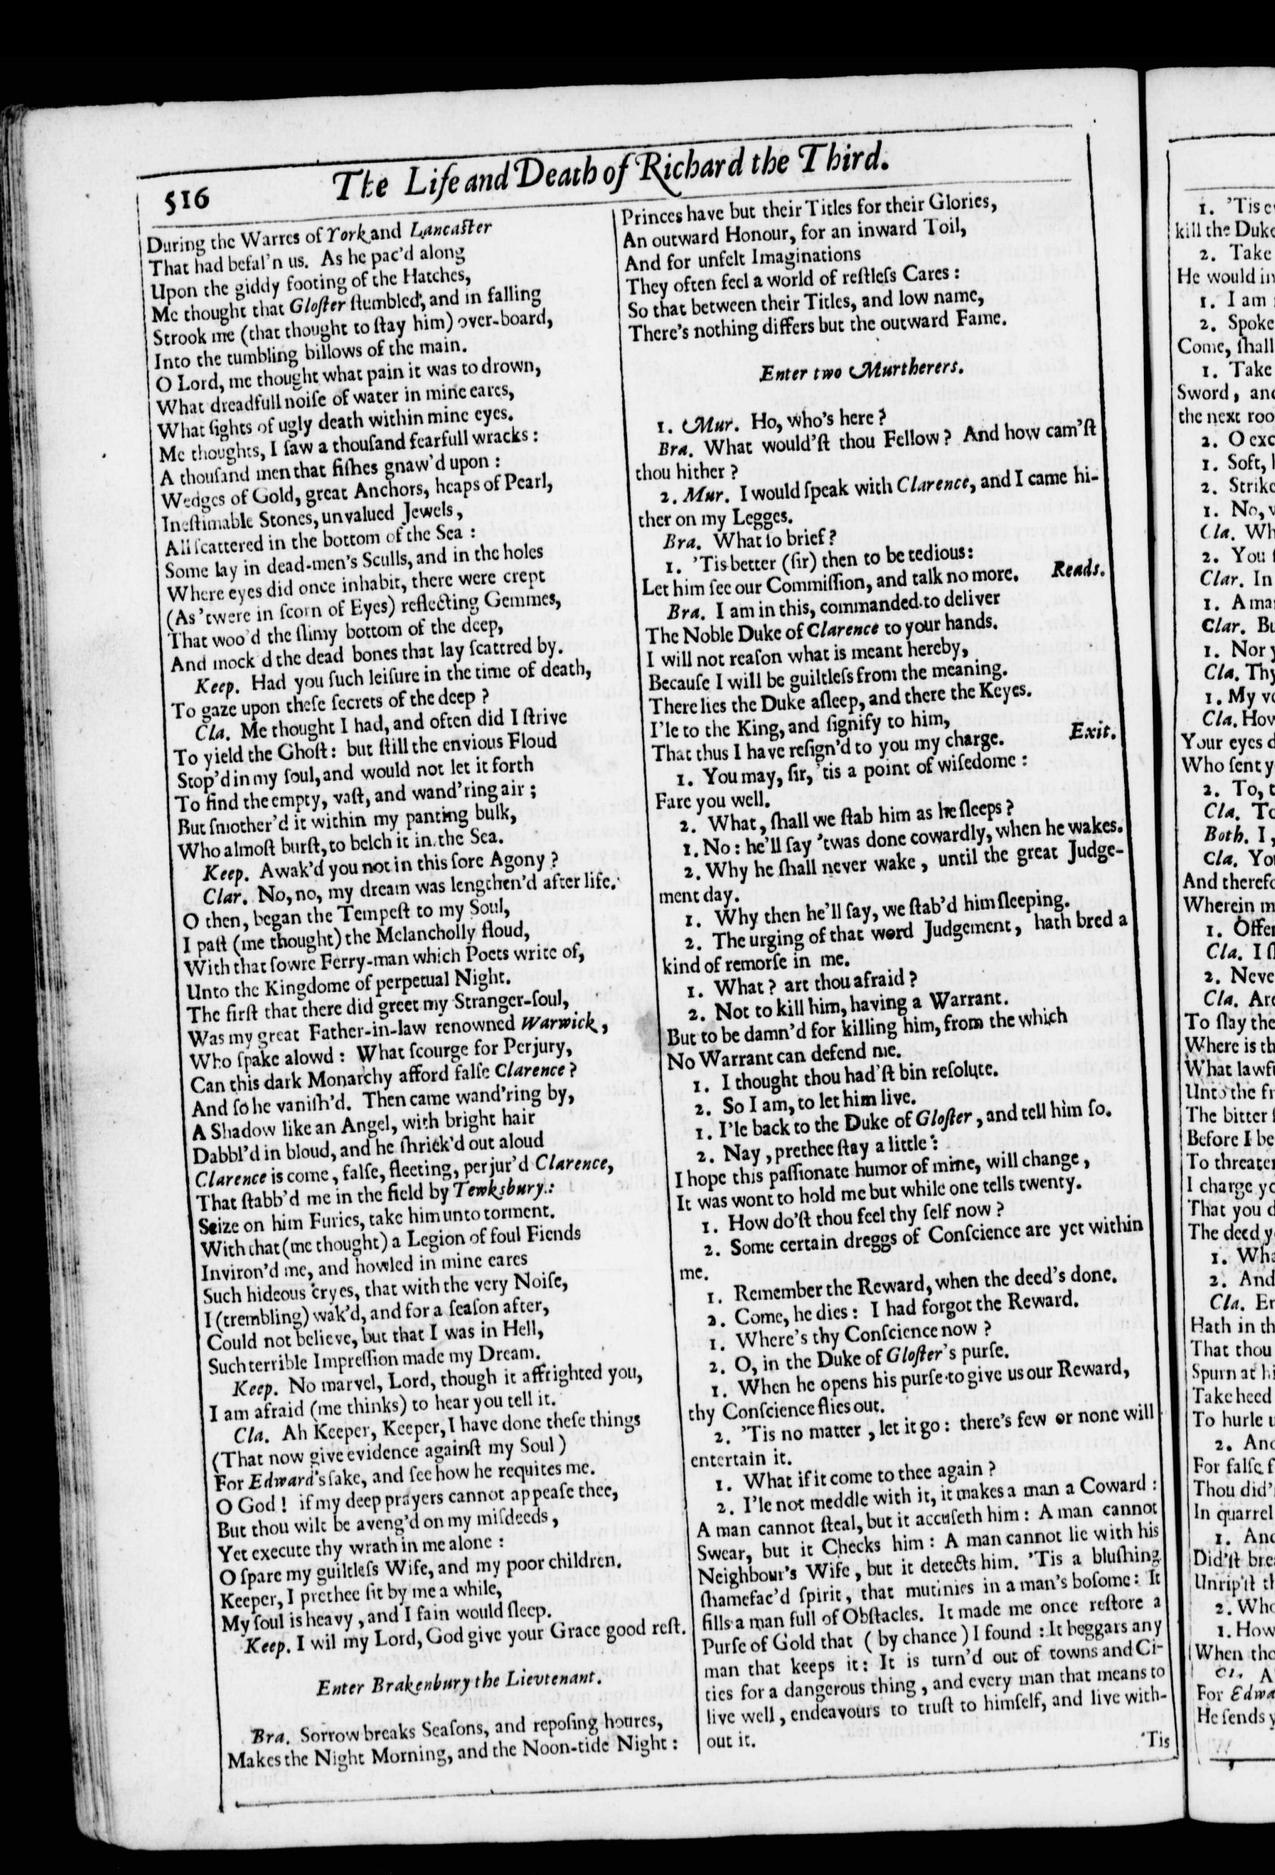 516 The Life and Death of Richard the Third.
During the Warres of York and Lancaſter
That had befal'n us. As he pac'd along
Upon the giddy footing of the Hatches,
Me thought that Gloſter ſtumbled, and in falling
Strook me (that thought to ſtay him) over-board,
Into the tumbling billows of the main.
O Lord, me thought what pain it was to drown,
What dreadfull noiſe of water in mine eares,
What ſights of ugly death within mine eyes.
Me thoughts, I ſaw a thouſand fearfull wracks:
A thouſand men that fiſhes gnaw'd upon:
Wedges of Gold, great Anchors, heaps of Pearl,
Ineſtimable Stones, unvalued Jewels,
All ſcattered in the bottom of the Sea:
Some lay in dead-men's Sculls, and in the holes
Where eyes did once inhabit, there were crept
(As 'twere in ſcorn of Eyes) reflecting Gemmes,
That woo'd the ſlimy bottom of the deep,
And mock'd the dead bones that lay ſcattred by.
Keep. Had you ſuch leiſure in the time of death,
To gaze upon theſe ſecrets of the deep?
Cla. Me thought I had, and often did I ſtrive
To yield the Ghoſt: but ſtill the envious Floud
Stop'd in my ſoul, and would not let it forth
To find the empty, vaſt, and wand'ring air;
But ſmother'd it within my panting bulk,
Who almoſt burſt, to belch it in the Sea.
Keep. Awak'd you not in this ſore Agony?
Clar. No, no, my dream was lengthen'd after life.
O then, began the Tempeſt to my Soul,
I paſt (me thought) the Melancholly floud,
With that ſowre Ferry-man which Poets write of,
Unto the Kingdome of perpetual Night.
The firſt that there did greet my Stranger-ſoul,
Was my great Father-in-law renowned Warwick,
Who ſpake alowd: What ſcourge for Perjury,
Can this dark Monarchy afford falſe Clarence?
And ſo he vaniſh'd. Then came wand'ring by,
A Shadow like an Angel, with bright hair
Dabbl'd in bloud, and he ſhriek'd out aloud
Clarence is come, falſe, fleeting, perjur'd Clarence,
That ſtabb'd me in the field by Tewksbury:
Seize on him Furies, take him unto torment.
With that (me thought) a Legion of foul Fiends
Inviron'd me, and howled in mine eares
Such hideous cryes, that with the very Noiſe,
I (trembling) wak'd, and for a ſeaſon after,
Could not believe, but that I was in Hell,
Such terrible Impreſſion made my Dream.
Keep. No marvel, Lord, though it affrighted you,
I am afraid (me thinks) to hear you tell it.
Cla. Ah Keeper, Keeper, I have done theſe things
(That now give evidence againſt my Soul)
For Edward's ſake, and ſee how he requites me.
O God! if my deep prayers cannot appeaſe thee,
But thou wilt be aveng'd on my miſdeeds,
Yet execute thy wrath in me alone:
O ſpare my guiltleſs Wife, and my poor children.
Keeper, I prethee ſit by me a while,
My ſoul is heavy, and I fain would ſleep.
Keep. I wil my Lord, God give your Grace good reſt.
Enter Brakenbury the Lieutenant.
Bra. Sorrow breaks Seaſons, and repoſing houres,
Makes the Night Morning, and the Noon-tide Night:
Princes have but their Titles for their Glories,
An outward Honour, for an inward Toil,
And for unfelt Imaginations
They often feel a world of reſtleſs Cares:
So that between their Titles, and low name,
There's nothing differs but the outward Fame.
Enter two Murtherers.
1. Mur. Ho, who's here?
Bra. What would'ſt thou Fellow? And how cam'ſt
thou hither?
2. Mur. I would ſpeak with Clarence, and I came hi-
ther on my Legges.
Bra. What ſo brief?
1. 'Tis better (ſir) then to be tedious:
Let him ſee our Commiſſion, and talk no more. Reads.
Bra. I am in this, commanded to deliver
The Noble Duke of Clarence to your hands.
I will not reaſon what is meant hereby,
Becauſe I will be guiltleſs from the meaning.
There lies the Duke aſleep, and there the Keyes.
I'le to the King, and ſignify to him,
That thus I have reſign'd to you my charge. Exit.
1. You may, ſir, 'tis a point of wiſedome:
Fare you well.
2. What, ſhall we ſtab him as he ſleeps?
1. No: he'll ſay 'twas done cowardly, when he wakes.
2. Why he ſhall never wake, until the great Judge-
ment day.
1. Why then he'll ſay, we ſtab'd him ſleeping.
2. The urging of that word Judgement, hath bred a
kind of remorſe in me.
1. What? art thou afraid?
2. Not to kill him, having a Warrant.
But to be damn'd for killing him, from the which
No Warrant can defend me.
1. I thought thou had'ſt bin reſolute.
2. So I am, to let him live.
1. I'le back to the Duke of Gloſter, and tell him ſo.
2. Nay, prethee ſtay a little:
I hope this paſſionate humor of mine, will change,
It was wont to hold me but while one tells twenty.
1. How do'ſt thou feel thy ſelf now?
2. Some certain dreggs of Conſcience are yet within
me.
1. Remember the Reward, when the deed's done.
2. Come, he dies: I had forgot the Reward.
1. Where's thy Conſcience now?
2. O, in the Duke of Gloſter's purſe.
1. When he opens his purſe to give us our Reward,
thy Conſcience flies out.
2. 'Tis no matter, let it go: there's few or none will
entertain it.
1. What if it come to thee again?
2. I'le not meddle with it, it makes a man a Coward:
A man cannot ſteal, but it accuſeth him: A man cannot
Swear, but it Checks him: A man cannot lie with his
Neighbour's Wife, but it detects him. 'Tis a bluſhing
ſhamefac'd ſpirit, that mutinies in a man's boſome: It
fills a man full of Obſtacles. It made me once reſtore a
Purſe of Gold that (by chance) I found: It beggars any
man that keeps it: It is turn'd out of towns and Ci-
ties for a dangerous thing, and every man that means to
live well, endeavours to truſt to himſelf, and live with-
out it.
'Tis
1. 'Tis
kill the Duke
2. Take
He would
1. I am
2. Spoke
Come, ſhall
1. Take
Sword, and
the next
2. O
1. Soft,
2. Strike
1. No,
Cla.
2. You
Clar. In
1. A
Clar.
1. Nor
Cla. Thy
1. My
Cla. How
Your eyes
Who ſent
2. To,
Cla.
Both. I,
Cla.
And
Wherein
1.
Cla. I
2.
Cla.
To ſlay the
Where is
What
Unto the
The bitter
Before I
To
I charge
That you
The deed
1.
2. And
Cla.
Hath in
That thou
Spurn at
Take heed
To hurle
2.
For falſe
Thou
In quarrel
1.
Did'ſt
Unrip'ſt
2.
1. How
When
For
He ſends